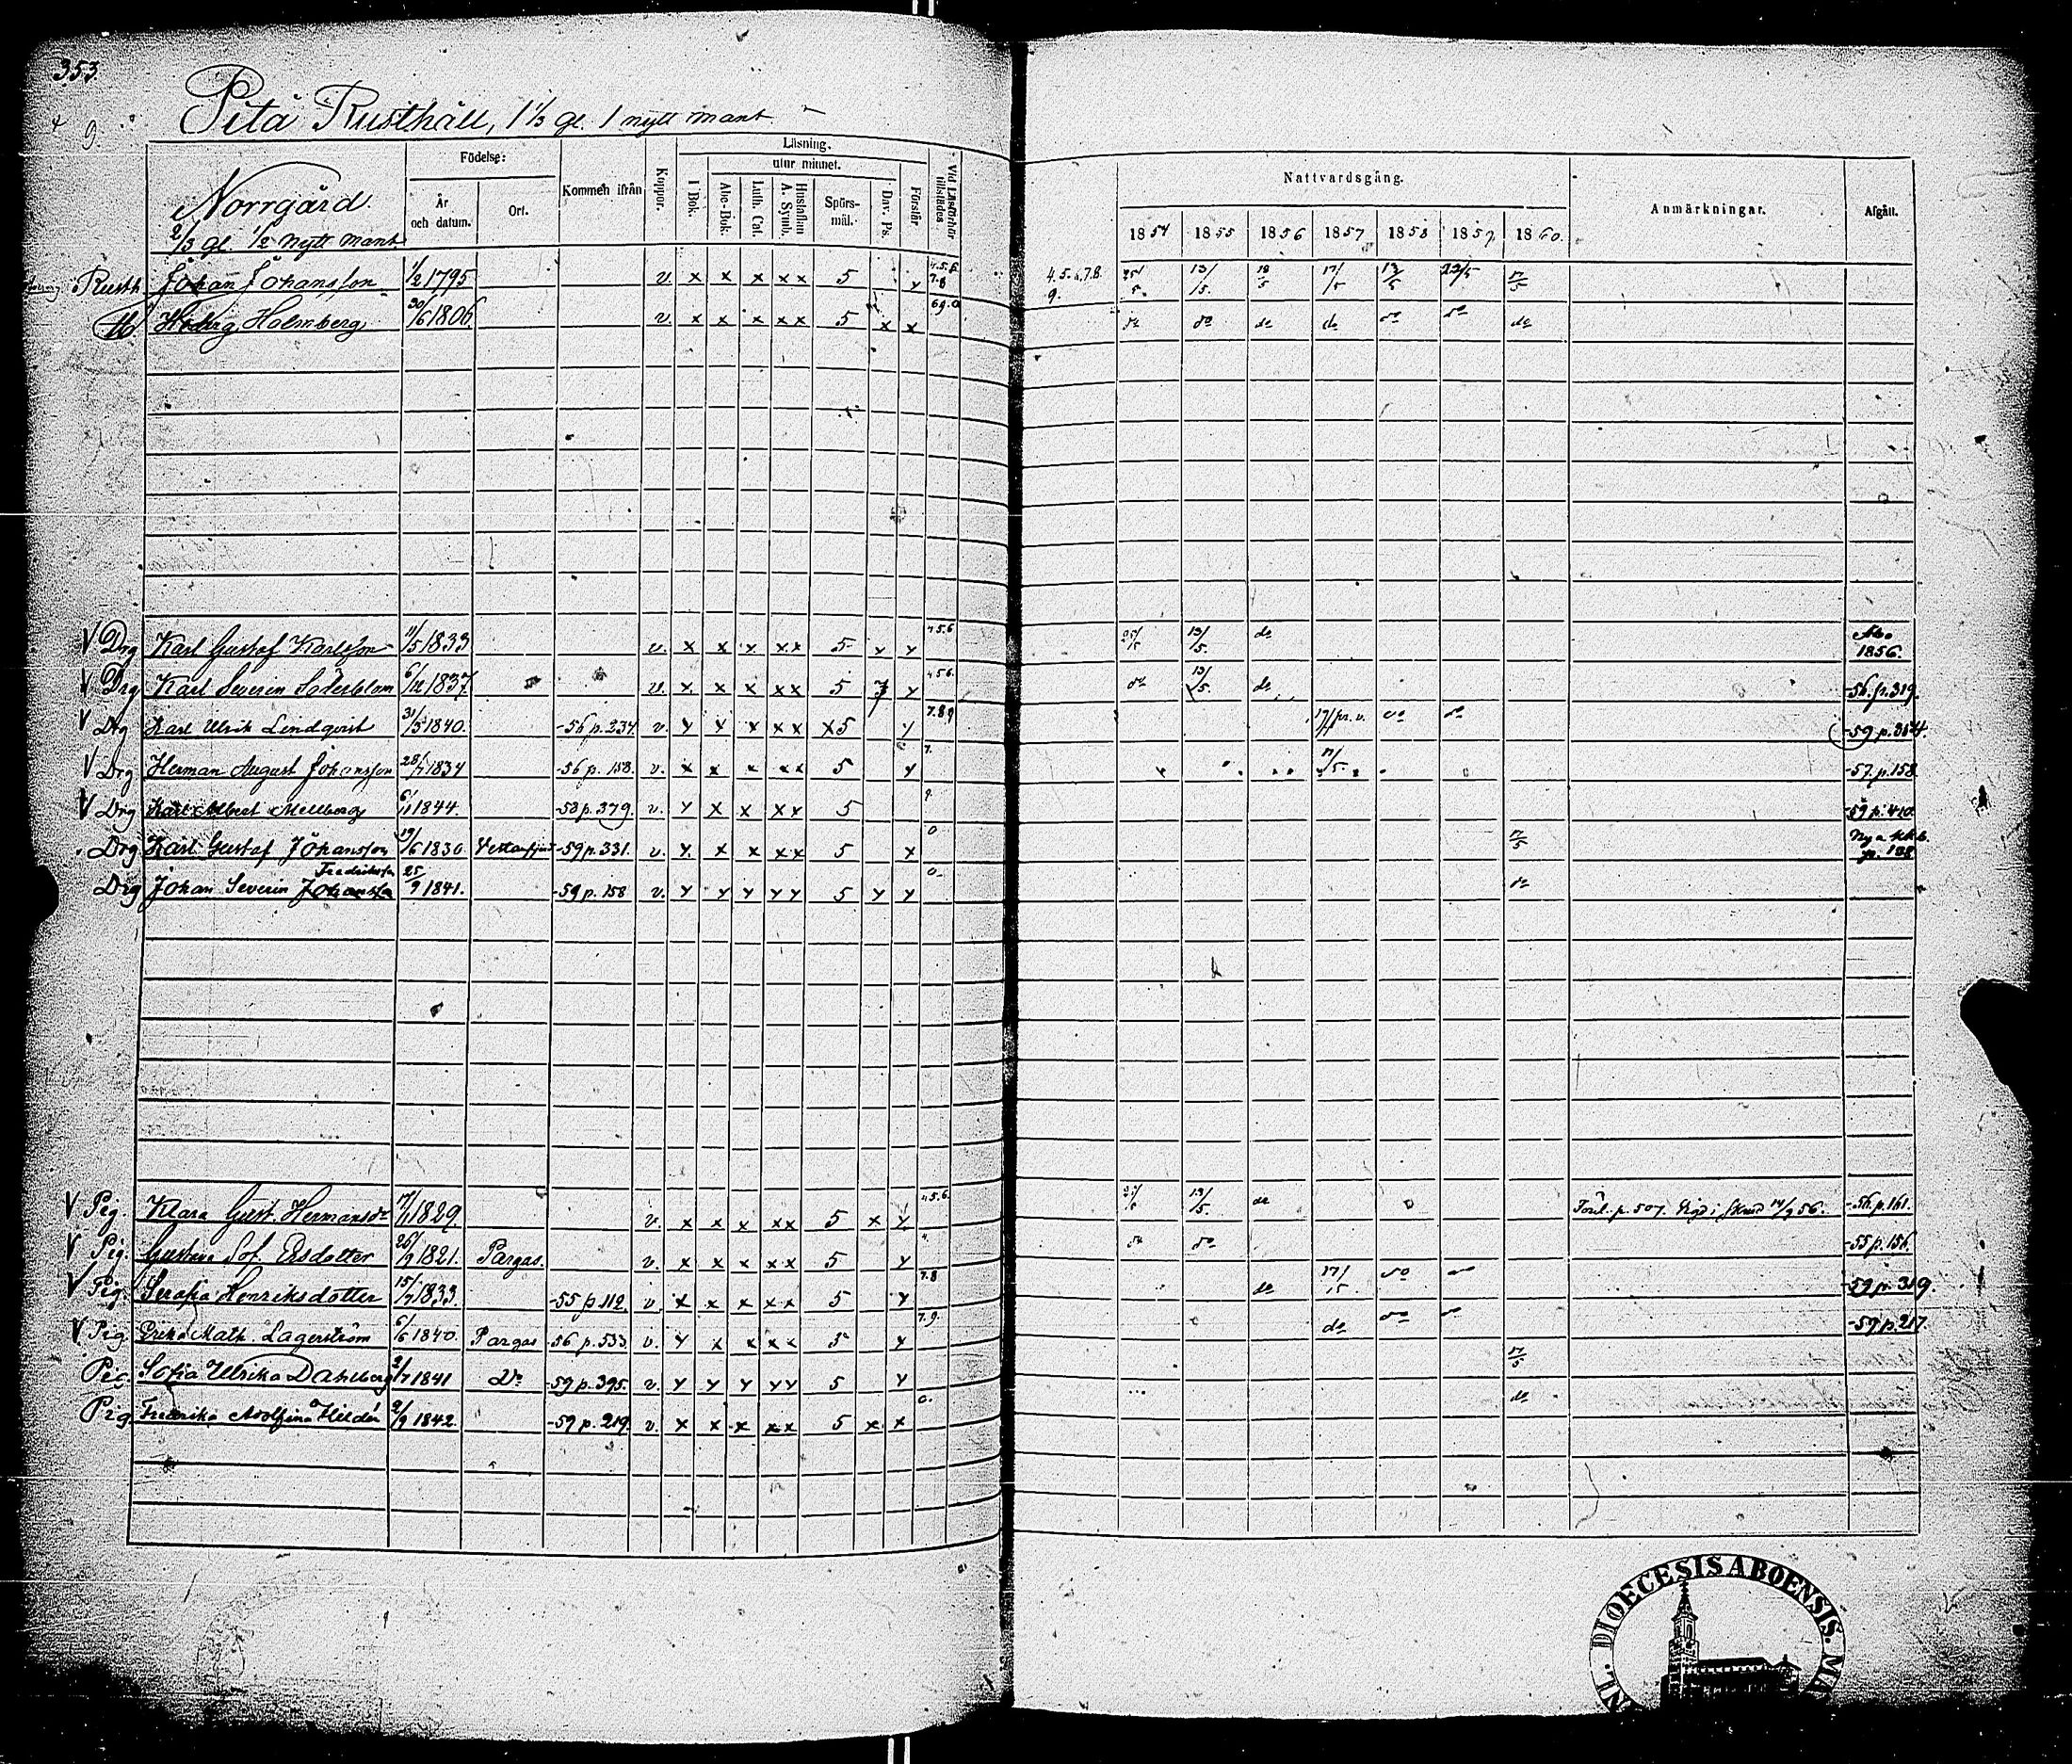 353.
9
Pitä Rusthåll, 1 1/3 gl. 1 nytt mant
Norrgård.
2/3 gl. 1/2 nytt mant.
Födelse:
År och datum.
Ort.
Kommen ifrån
Koppor.
Läsning.
utur minnet.
I Bok.
Abc-Bok.
Luth. Cat.
Hustaflan A. Symb.
Spörsmål.
Dav. Ps.
Förstår
Vid Läsförhör tillstädes
Nattvardsgång.
1854 1855 1856 1857 1858 1859 1860.
Anmärkningar.
Afgått.
Rusth. Johan Johansson 1/2 1795 v. x x x x x 5 y 4.5.6.7.8. 9. 13/5. 18/5 17/5 13/5 22/5 17/5
Holmberg 30/6 1806. v. x x x x x 5 x x do do do do do do do
V Drg Karl Gustaf Karlsson 11/5 1833 v. x x x x x 5 y y 4 5 6 25/5 13/5. do Åbo 1856.
V Drg Karl Severin Söderblom 6/12 1837. v. x x x x x 5 y 4 5 6. do 13/5. do -56. p. 319.
V Drg Karl Ulrik Lindqvist 31/5 1840. -56 p. 234 v. y x x x x x5 y 7.8.9 17/5 pr. v. do do -59 p. 384.
V Drg Herman August Johansson 28/7 1834 -56 p. 158. v. x x x x x 5 y 7. 17/5. -57. p. 158
V Drg Karl Albert Mellberg 6/11 1844. -58 p. 379. v. y x x x y 5 9. -59 p. 410.
Drg Karl Gustaf Johansson 19/6 1830. -59 p. 331. v. y. x x x x 5 x 0 17/5 Nya kkb. p. 188
Drg Johan Severin Johansson Fredriksson 25/9 1841. -59 p. 158 v. y y y y y 5 y y 0. do
V Pig. Klara Gust. Hermansdr 17/11 1829. v. x x x x x 5 x y 4 5 6. 25/5 13/5. do Förl. p. 507. 14/9 56. -56. p. 161.
V Pig. Gustava Sof. Ersdotter 26/9 1821. Pargas. v. x x x x x 5 y 4. do do -55 p. 156.
V Pig. Serafia Henriksdotter 15/7 1833. -55 p 112. v. x x x x x 5 y 7.8 do 17/5. do -59 p. 319.
V Pig. Erika Math. Lagerström 6/6 1840. Pargas -56 p. 533. v. y x x x x 5 y 7.9. do do -59 p. 217
Pig. Sofia Ulrika Dahlberg 2/7 1841 Do -59 p. 395. v. y y y y y 5 y 17/5
Pig Fredrika Adolfina Hildén 2/9 1842. -59 p. 219. v. x x x x x 5 x x 0. do
DIOECESIS ABOENSIS. MA